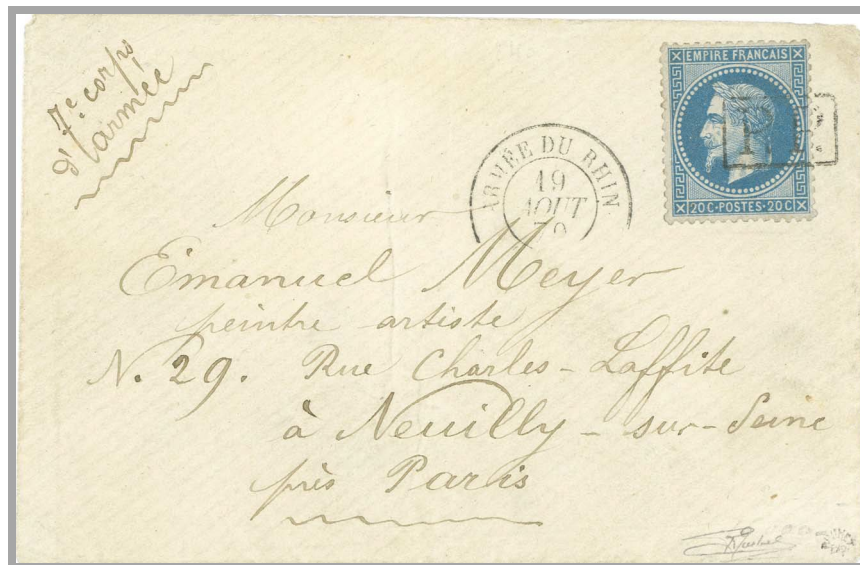 7e corps
d'armée
EMPIRE FRANÇAIS
20C·POSTES·20C
ARMÉE DU RHIN
19
AOUT
70
Monsieur
Emanuel Meyer
peintre artiste
N. 29. Rue Charles-Laffite
à Neuilly-sur-Seine
près Paris